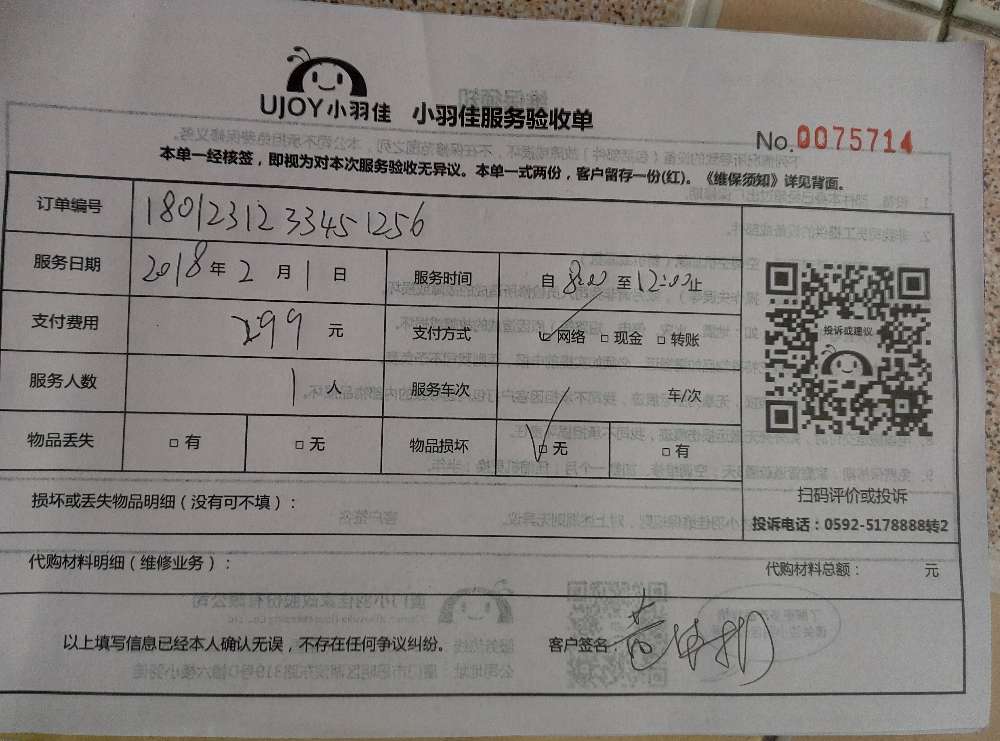 UJOY小羽佳 小羽佳服务验收单
No.0075714
本单一经核签，即视为对本次服务验收无异议。本单一式两份，客户留存一份(红)。《维保须知》详见背面。
订单编号 180123123345 1256
服务日期 2018年2月1日 服务时间 自8:00至12:00止
支付费用 299元 支付方式 ☑网络 □现金 □转账
投诉或建议
服务人数 1人 服务车次 车/次
物品丢失 □有 □无 物品损坏 ☑无 □有
扫码评价或投诉
损坏或丢失物品明细（没有可不填）：
投诉电话：0592-5178888转2
代购材料明细（维修业务）： 代购材料总额： 元
以上填写信息已经本人确认无误，不存在任何争议纠纷。 客户签名：